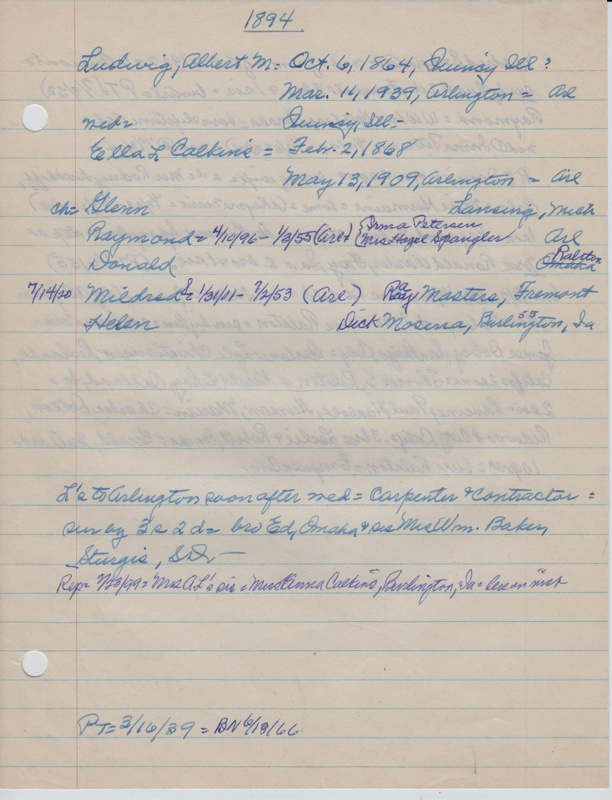 1894
Ludwig, Albert M: Oct. 6, 1864, Quincy Ill:
Mar. 14, 1939, Arlington = Arl
med= Quincy, Ill:-
Ella L Calkins = Febr. 2, 1868
May 13, 1909, Arlington = Arl
ch= Glenn Lansing, Mich
Raymond = 4/10/96 - 1/3/55 (Arl) { Irma Petersen Arl
{ Mrs Hazel Spangler
Donald Omaha Ralston
7/14/20 Mildred L 1/31/11 - 7/2/53 (Arl) Ray Masters, Fremont
Helen Dick Moserva, Burlington, 55 Ia
L's to Arlington soon after med = Carpenter & Contractor =
sur by 3 s 2 d = bro Ed, Omaha & sis Mrs Wm. Baker,
Sturgis, S.D. -
Rep= Mrs A L's sis = Miss Anna Calkins, Burlington, Ia = here on visit
PT= 3/16/39 = BN 6/13/66